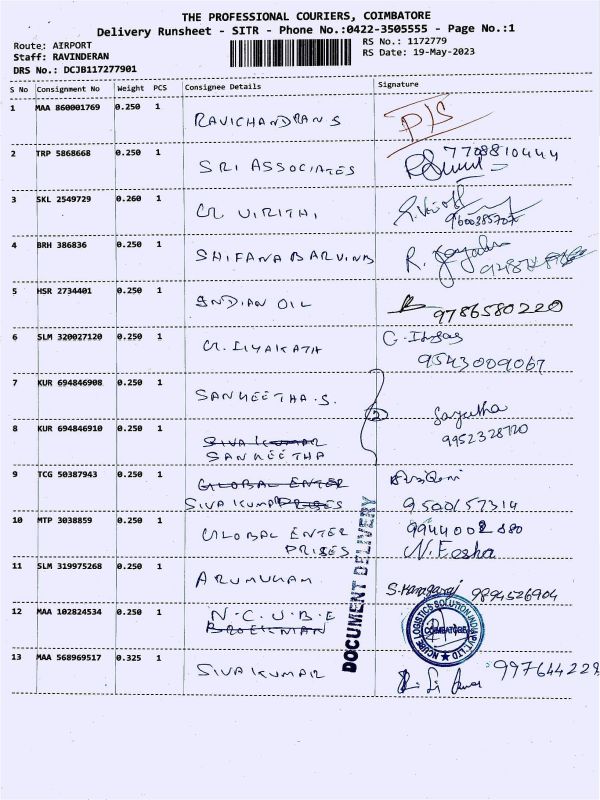 THE PROFESSIONAL COURIERS, COIMBATORE
Delivery Runsheet - SITR - Phone No.:0422-3505555 - Page No.:1
Route: AIRPORT
RS No.: 1172779
Staff: RAVINDERAN
RS Date: 19-May-2023
DRS No.: DCJB117277901
S No Consignment No Weight PCS Consignee Details Signature
1 MAA 860001769 0.250 1 RAVICHANDRAN S P/S
2 TRP 5868668 0.250 1 SRI ASSOCIATES 7708810444
3 SKL 2549729 0.260 1 G. VIRITHI 9600385707
4 BRH 386836 0.250 1 SHIFANA BARVINB
5 HSR 2734401 0.250 1 INDIAN OIL 9786580220
6 SLM 320027120 0.250 1 G. ILYAKATH
9543009067
7 KUR 694846908 0.250 1 SANKEETHA.S. 2
8 KUR 694846910 0.250 1 SIVA KUMAR 9952328720
SANKEETHA
9 TCG 50387943 0.250 1 GLOBAL ENTER
SIVA KUMAR PRISES 9500157314
10 MTP 3038859 0.250 1 GLOBAL ENTER
PRISES N. Eesha
11 SLM 319975268 0.250 1 ARUMUGAM 9894526904
12 MAA 102824534 0.250 1 N.C.U.B.E
NCUBE LOGISTICS SOLUTION INDIA PVT LTD
COIMBATORE
13 MAA 568969517 0.325 1 SIVA KUMAR 997644229
DOCUMENT DELIVERY